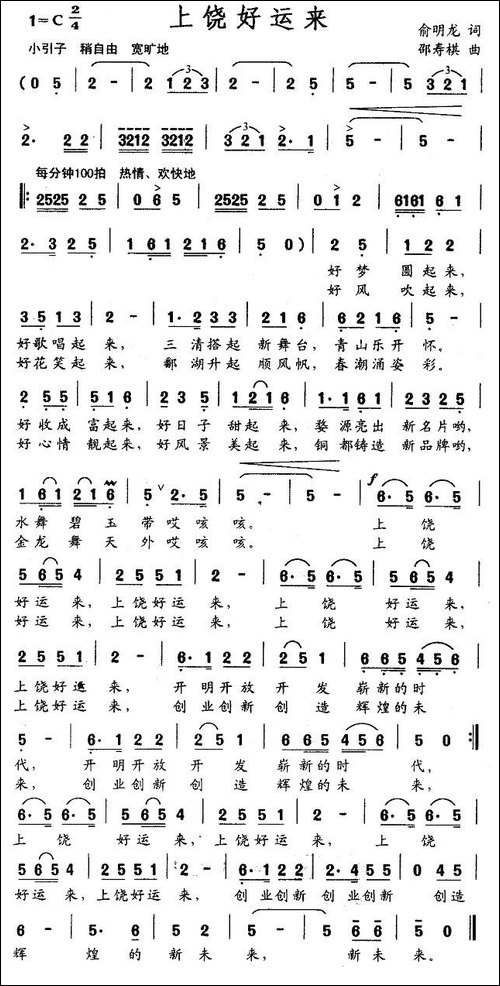 上饶好运来
1=C 2/4
俞明龙 词
小引子 稍自由 宽旷地
邵寿棋 曲
(0 5 | 2 - | 2 1 2 3 | 2 - | 2 - | 5 - | 5 3 2 1 |
2· 2 2 | 3212 3212 | 3 2 1 2·1 | 5 - | 5 - |
每分钟100拍 热情、欢快地
‖: 2525 2 5 | 0 6 5 | 2525 2 5 | 0 1 2 | 6161 6 1 |
2· 3 2 5 | 1 6 1 2 1 6 | 5 0 ) | 2 5 | 1 2 2 |
好 梦 圆 起 来,
好 风 吹 起 来,
3 5 1 3 | 2 - | 1· 2 3 3 | 2 1 2 3 | 6 2 1 6 | 5 - |
好歌唱起 来, 三 清搭起 新舞台, 青山乐开 怀。
好花笑起 来, 鄱 湖升起 顺风帆, 春潮涌姿 彩。
2 5 5 | 5 1 6 | 2 3 2 5 | 1 2 1 6 | 1· 1 6 1 | 2 3 2 5 |
好收成 富起来, 好日子 甜起 来, 婺 源亮出 新名片哟,
好心情 靓起来, 好风景 美起 来, 铜 都铸造 新品牌哟,
1 6 1 2 1 6 | 5 ∨ 2· 5 | 5 - | 5 - | f 6· 5 6· 5 |
水舞 碧 玉 带哎 咳 咳。 上 饶
金龙 舞 天 外哎 咳 咳。 上 饶
5 6 5 4 | 2 5 5 1 | 2 - | 6· 5 6· 5 | 5 6 5 4 |
好运 来, 上饶好运 来, 上 饶 好运 来,
好运 来, 上饶好运 来, 上 饶 好运 来,
2 5 5 1 | 2 - | 6· 1 2 2 | 2 5 1 | 6 6 5 4 5 6 |
上饶好运 来, 开 明开放 开 发 崭新的时
上饶好运 来, 创 业创新 创 造 辉煌的未
5 - | 6· 1 2 2 | 2 5 1 | 6 6 5 4 5 6 | 5 0 :‖
代, 开 明开放 开 发 崭新的时 代,
来, 创 业创新 创 造 辉煌的未 来,
6· 5 6· 5 | 5 6 5 4 | 2 5 5 1 | 2 - | 6· 5 6· 5 |
上 饶 好运 来, 上饶好运 来, 上 饶
5 6 5 4 | 2 5 5 1 | 2 - | 6· 1 2 2 | 2· 4 5 5 | 0 4 5 |
好运 来, 上饶好运 来, 创 业创新 创 业创新 创造
6 - | 5 - | 6 5 | 5 2 | 2 - | 2 - | 5 6 6 | 5 0 ‖
辉 煌 的 新 未 来, 新 未 来。